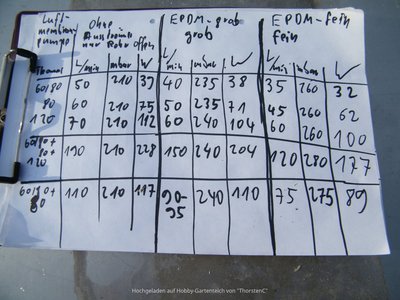 Luft- Ohne EPDM-grob EPDM-fein
membran Ausströmer grob fein
pumpe nur Rohr Offen
Thomas L/min mbar W L/min mbar W L/min mbar W
60/80 50 210 39 40 235 38 35 260 32
80 60 210 75 50 235 71 45 260 62
120 70 210 112 60 240 104 60 260 100
60/80+
80+ 190 210 228 150 240 204 120 280 177
120
60/80+ 110 210 117 90- 240 110 75 275 89
80 95
Hochgeladen auf Hobby-Gartenteich von "ThorstenC"